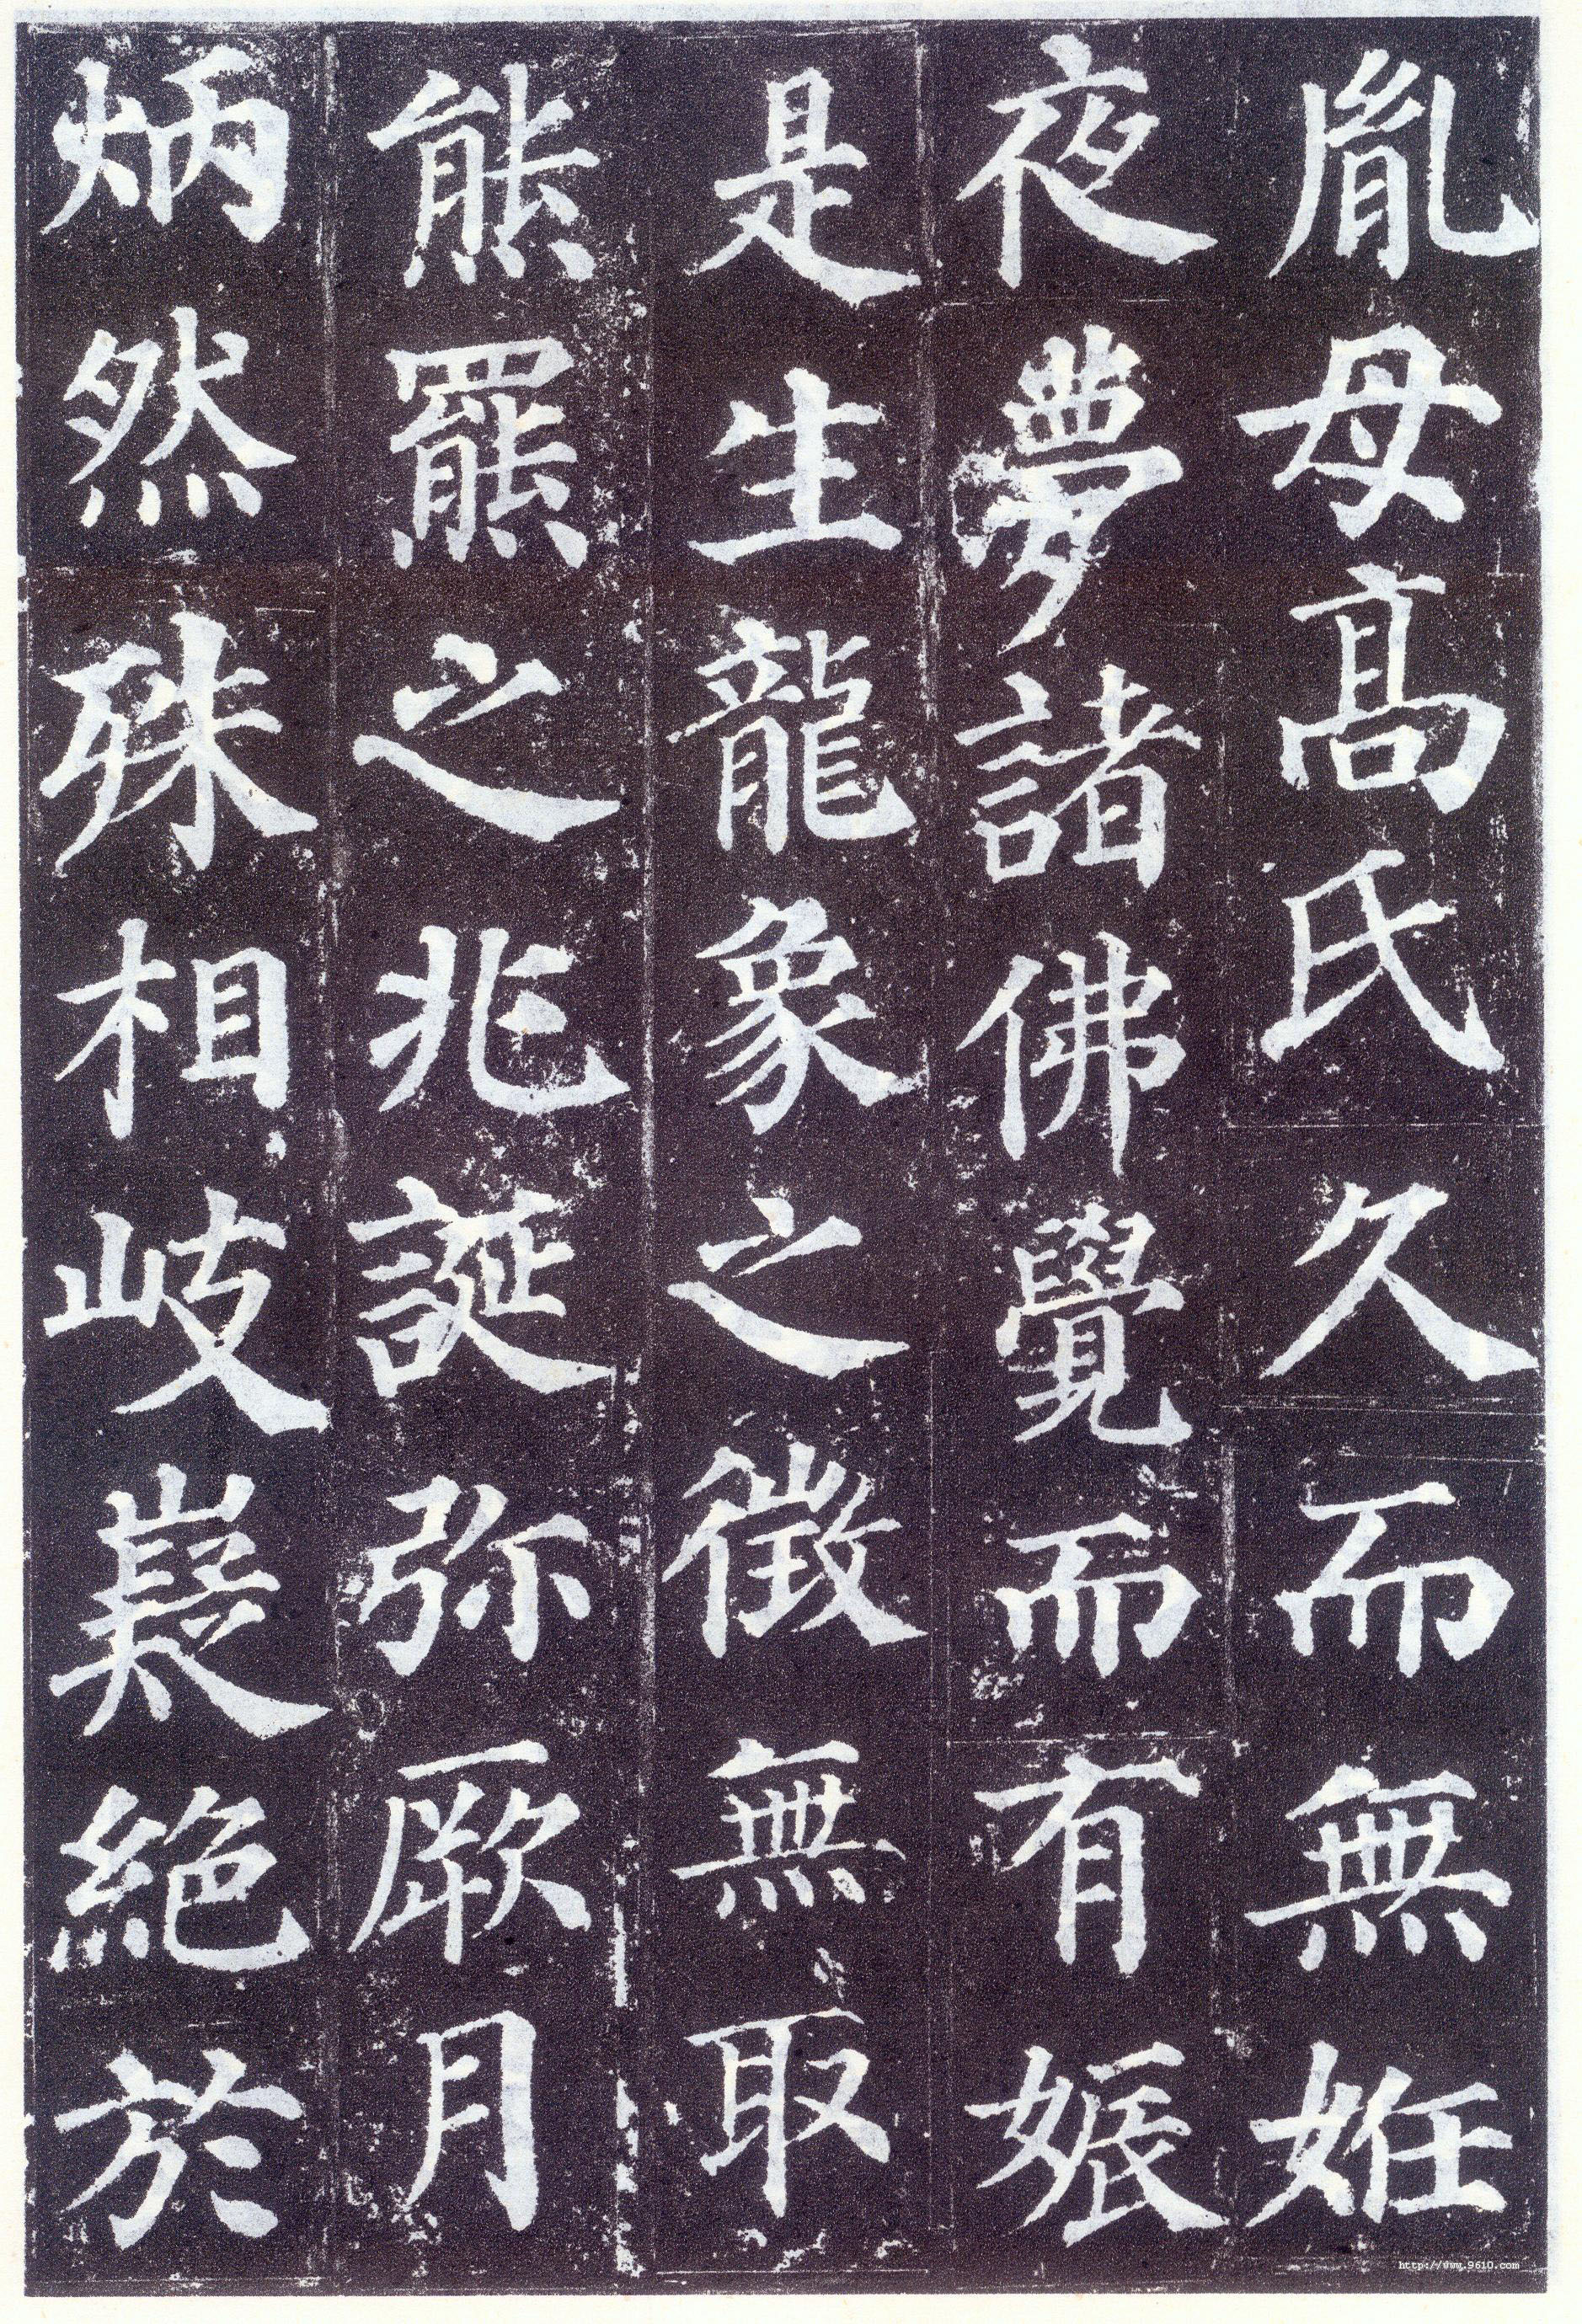 胤母高氏久而無姙
夜夢諸佛覺而有娠
是生龍象之徵無取
熊羆之兆誕弥厥月
炳然殊相岐嶷絕於
http://www.9610.com